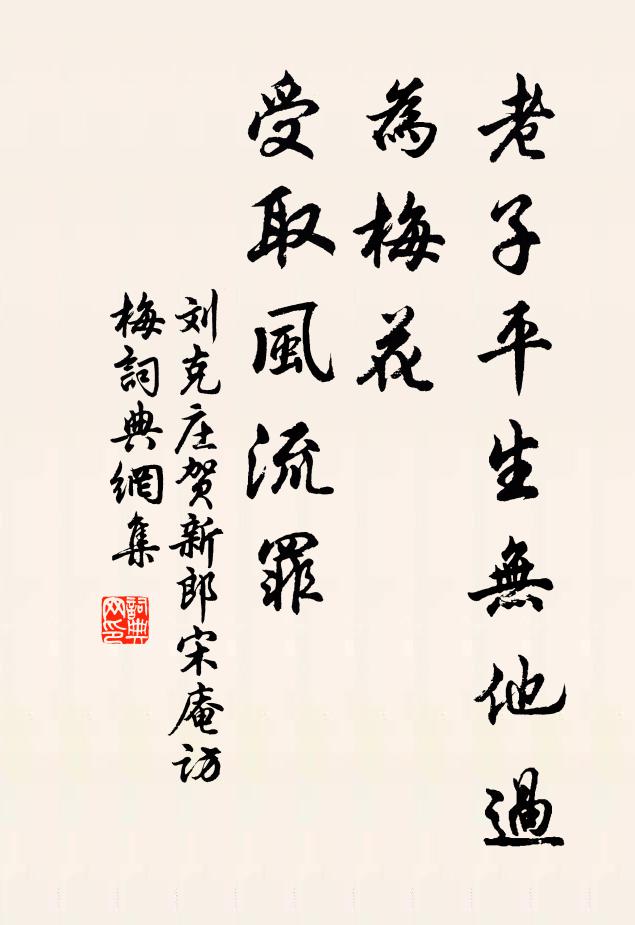 老子平生無他過
為梅花
受取風流罪
刘克庄贺新郎宋庵访
梅詞典網集
詞典网印